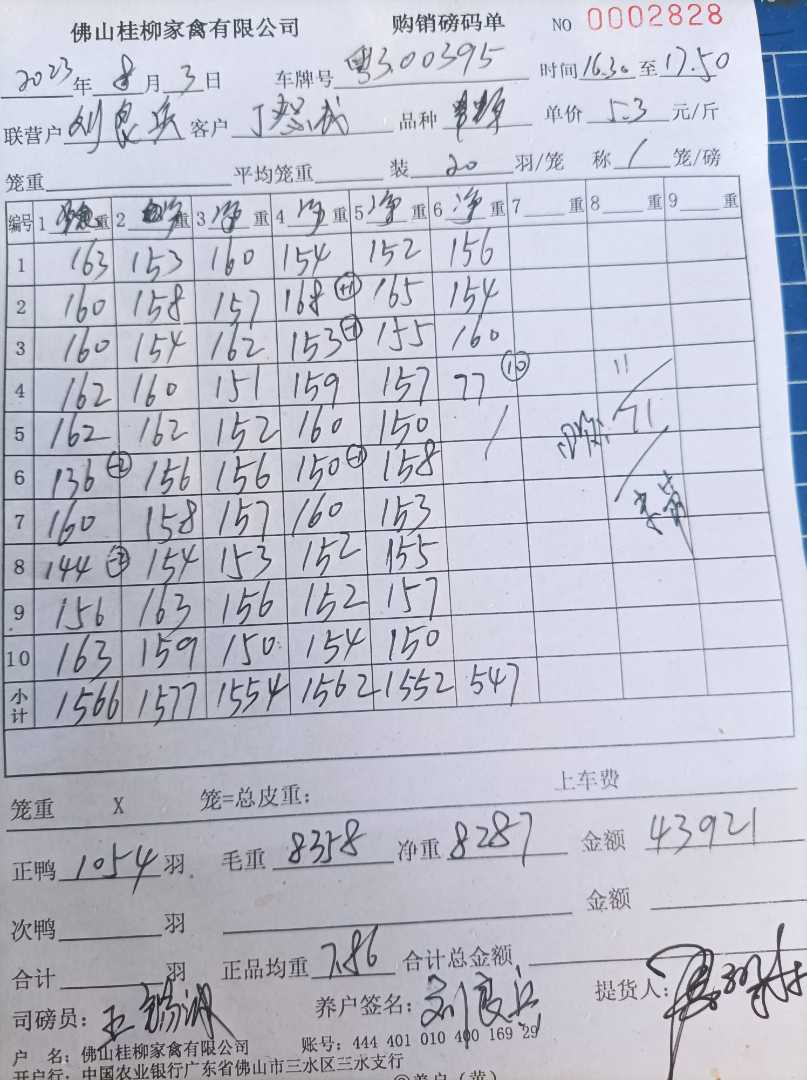 佛山桂柳家禽有限公司 购销磅码单 NO 0002828
2023年 8月 3日 车牌号 粤300395 时间16.30至17.50
联营户 刘良兵 客户 品种 单价 5.3 元/斤
笼重 平均笼重 装 20 羽/笼 称 1 笼/磅
编号 1 重 2 净重 3 净重 4 净重 5 净重 6 净重 7 重 8 重 9 重
1 163 153 160 154 152 156
2 160 158 157 168 (+1) 165 154
3 160 154 162 153 (-1) 155 160
4 162 160 151 159 157 77 (10) 11
5 162 162 152 160 150 / 71
6 136 (-2) 156 156 150 (-1) 158
7 160 158 157 160 153
8 144 (-2) 154 153 152 155
9 156 163 156 152 157
10 163 159 150 154 150
小计 1566 1577 1554 1562 1552 547
笼重 X 笼=总皮重: 上车费
正鸭 1054 羽 毛重 8358 净重 8287 金额 43921
次鸭 羽 金额
合计 羽 正品均重 7.86 合计总金额
司磅员: 养户签名: 刘良兵 提货人:
户 名: 佛山桂柳家禽有限公司 账号: 444 401 010 400 169 29
开户行: 中国农业银行广东省佛山市三水区三水支行
②养户(黄)